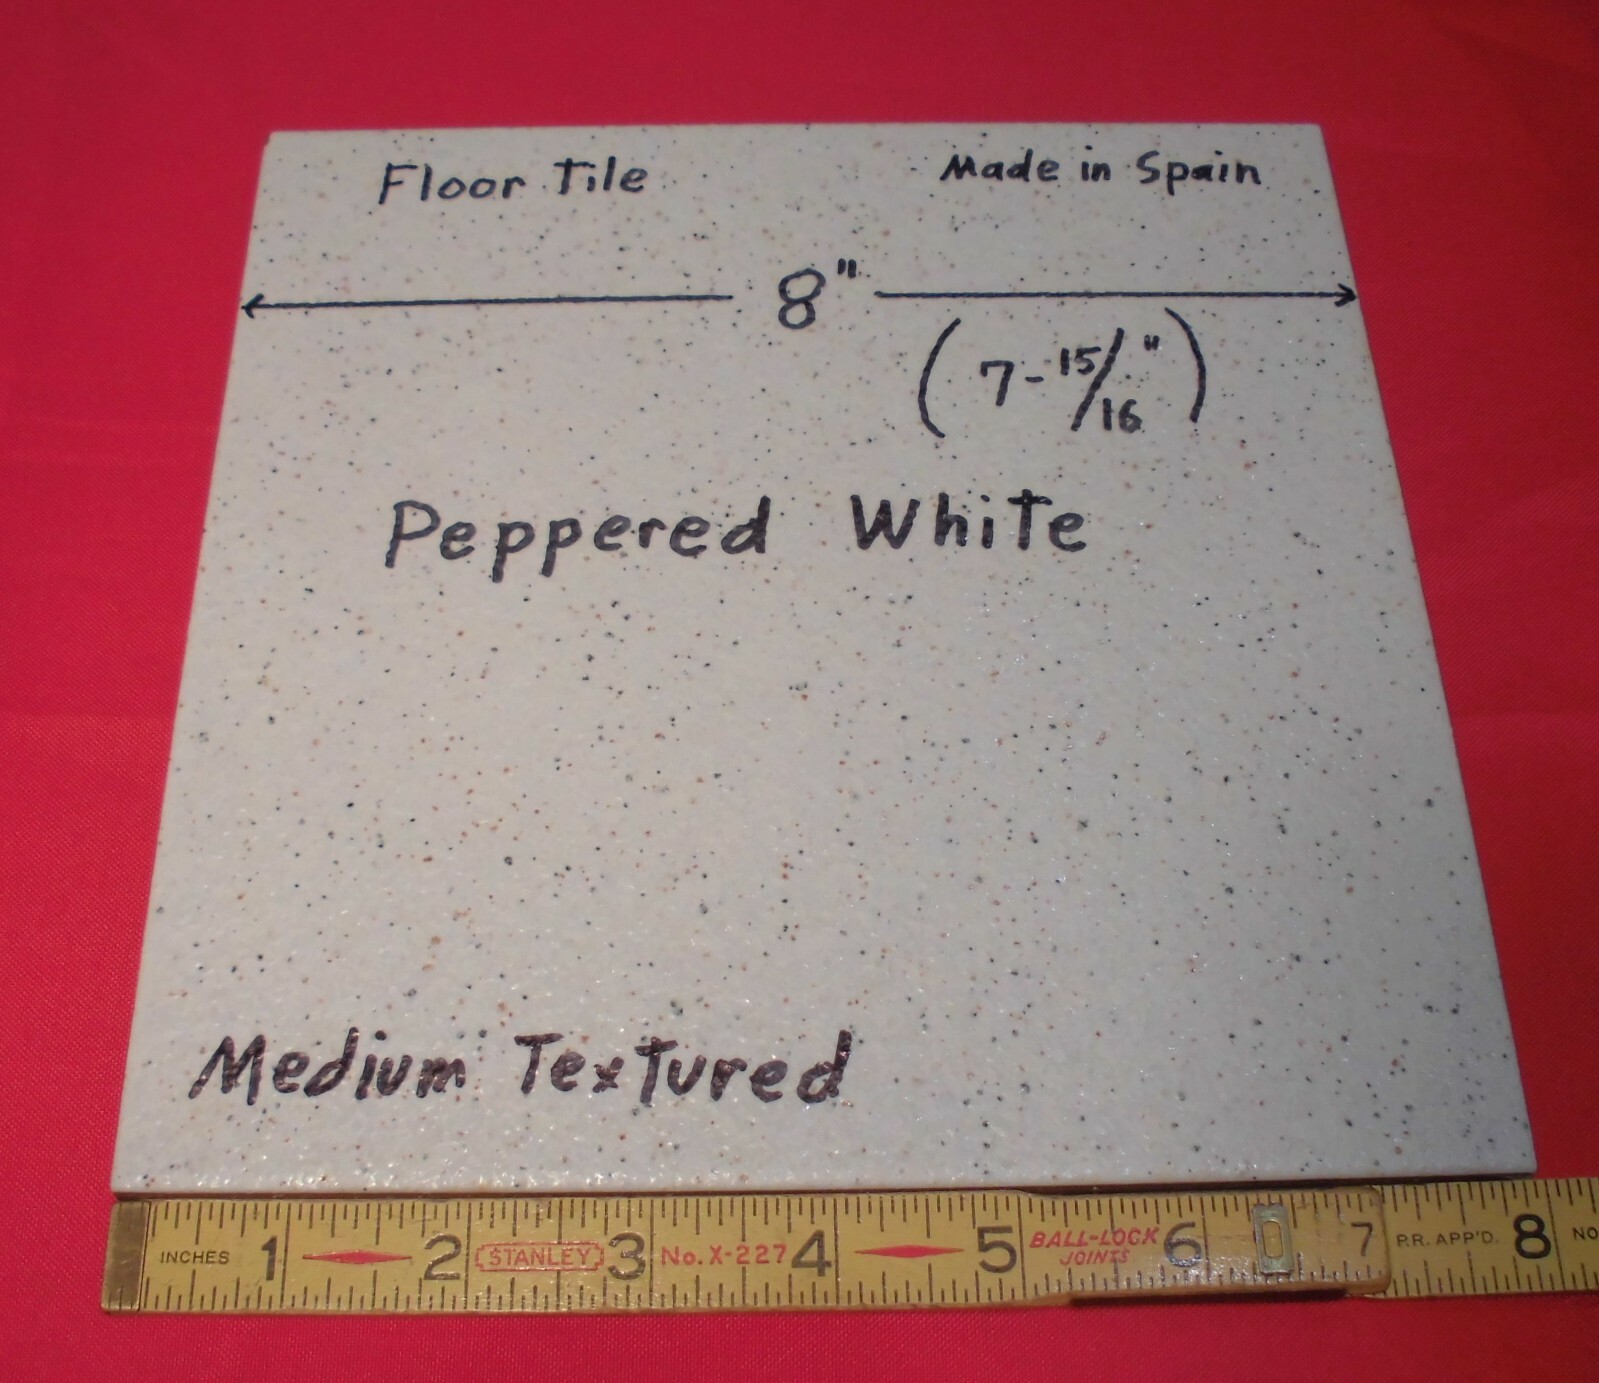 Floor Tile Made in Spain
8"
(7-15/16")
Peppered White
Medium Textured
INCHES 1 2 STANLEY 3 No. X-227 4 5 BALL-LOCK JOINTS 6 7 P.R. APP'D. 8 NO